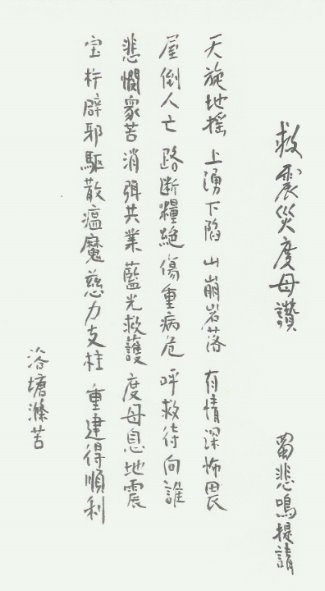 救震災度母讚
蜀悲鳴提請
天旋地搖 上湧下陷 山崩岩落 有情深怖畏
屋倒人亡 路斷糧絕 傷重病危 呼救待向誰
悲憫衆苦 消弭共業 藍光救護 度母息地震
宝杵辟邪 驅散瘟魔 慈力支柱 重建得順利
浴塘滌苦